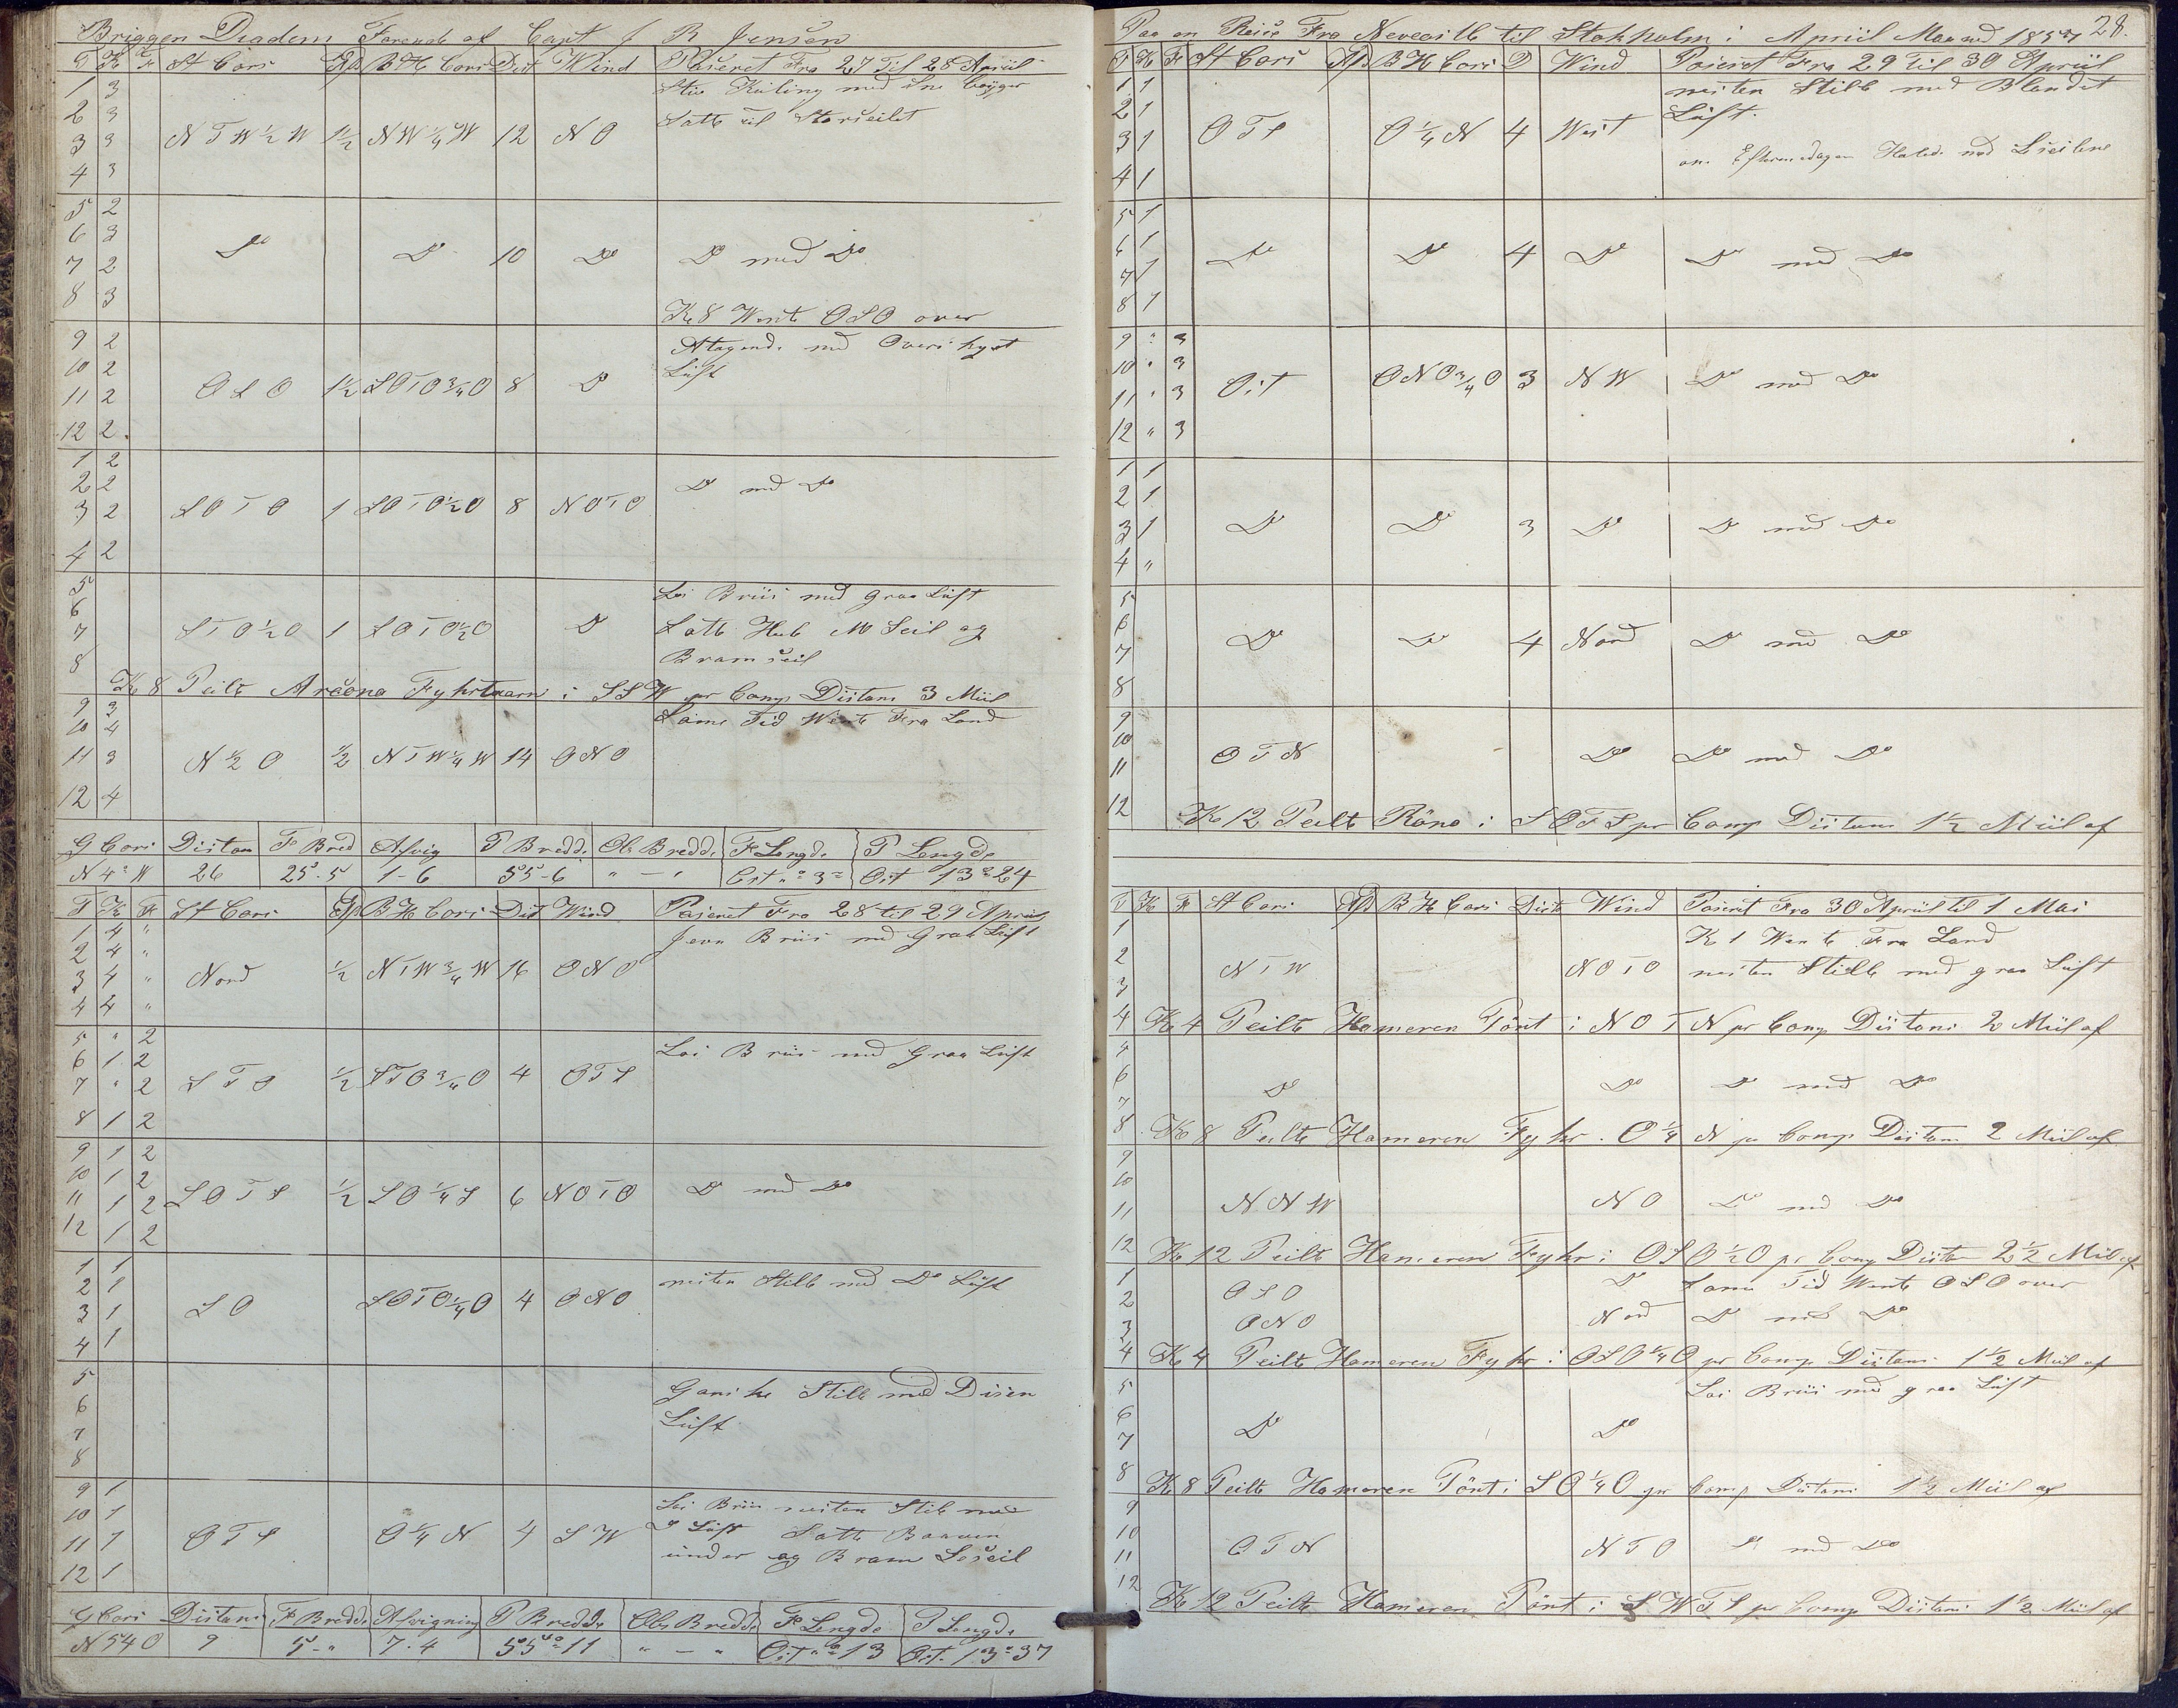 Briggen Diadem Førende af Capt J R Jensen
T K F St Cors Afd B H Cors Dist Wind Paseret Fra 27 Til 28 Apriil
1 3 Stiv Kuling med Sne bøyger
2 3 Satte til Storseilet
3 3 N T W ½ W 1½ NW ¼ W 12 N O
4 3
5 2
6 3 Do Do 10 Do Do med Do
7 2
8 3 K 8 Wente OSO over
9 2 Atagende med Overskyet
10 2 Luft
11 2 O S O 1½ SOTO ¾ O 8 Do
12 2
1 2
2 2 Do med Do
3 2 S O T O 1 SOTO ½ O 8 NOTO
4 2
5 Lai Briis med graa Luft
6 Satte Hele M Seil og
7 STO ½ O 1 SOTO ½ O Do
8 Bramseil
K 8 Peilte Arcona Fyhrtaarn i SSW pr Comp Distans 3 Miil
9 3 Same Tid Wente Fra Land
10 4
11 3 N ½ O ½ NTW ¼ W 14 O N O
12 4
G Cors Distan F Bred Afvig P Bredde Ob Bredde F Lengde P Lengde
N 4° W 26 25.5 1-6 55-6 " - " Ost "° 3 Ost 13° 24
T K F St Cors Afd B H Cors Dist Wind Paseret Fra 28 til 29 Apriil
1 4 " Jevn Briis med Graa Luft
2 4 "
3 4 " Nord ½ NTW ¾ W 16 O N O
4 4 "
5 " 2 Lai Briis med Graa Luft
6 1 2
7 " 2 S T O ½ STO ¾ O 4 OTS
8 1 2
9 1 2
10 1 2
11 1 2 SOTS ½ SO ¼ S 6 NOTO Do med Do
12 1 2
1 1 nesten Stille med Do Luft
2 1
3 1 S O SOTO ¼ O 4 O N O
4 1
5 Ganske Stille med Disen
6 Luft
7
8
9 1 Lai Briis nesten Stile med
10 1 Do Luft Satte Baaven
11 1 OTS O ¼ N 4 S W
12 1 under og Bram Leseil
G Cors Distans F Bredde Afvigning P Bredde Obs Bredde F Lengde P Lengde
N 54 O 9 5 - " 7.4 55° 11 " - " Ost "° 13 Ost. 13° 37
Paa en Reise Fra Newcastle til Stokholm i Apriil Maaned 1857 28.
T K F St Cors Afd B H Cors D Wind Paseret Fra 29 Til 30 Apriil
1 1 nesten Stille med Blandet
2 1 Luft.
3 1 OTS O ¼ N 4 West
om Eftermedagen Halede ned Leseilene
4 1
5 1
6 1 Do Do 4 Do Do med Do
7 1
8 1
9 " 3
10 " 3 Ost ONO ¾ O 3 N W Do med Do
11 " 3
12 " 3
1 1
2 1
3 1 Do Do 3 Do Do med Do
4 "
5
6 Do Do 4 Nord Do med Do
7
8
9
10 OTN Do Do med Do
11
12 K 12 Peilte Röno i SOTS pr Comp Distans 1½ Miil af
T K F St Cors Afd B H Cors Dist Wind Paseret Fra 30 Apriil til 1 Mai
1 K 1 Wente Fra Land
2 NTW NOTO nesten Stille med graa Luft
3
4 K 4 Peilte Hameren Pönt i NOTN pr Comp Distans 2 Miil af
5
6 Do Do Do med Do
7
8 K 8 Peilte Hameren Fyhr. O ¼ N pr Comp Distans 2 Miil af
9
10
11 N N W N O Do med Do
12 K 12 Peilte Hameren Fyhr i OSO ½ O pr Comp Distan 2½ Miil af
1 Do Same Tid Wente OSO over
2 O S O
3 O N O Nord Do med Do
4 K 4 Peilte Hameren Fyhr i OSO ¼ O pr Comp Distans 1½ Miil af
5 Lai Briis med graa Luft
6 Do Do
7
8 K 8 Peilte Hameren Pönt i SO ¼ O pr Comp Distans 1½ Miil af
9
10 OTN NTO Do med Do
11
12 K 12 Peilte Hameren Pönt i SWTS pr Comp Distans 1½ Miil af